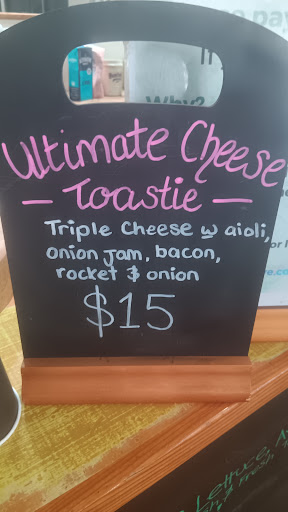 Ultimate Cheese
- Toastie -
Triple Cheese w aioli,
onion jam, bacon,
rocket & onion
$15
Why?
Lettuce